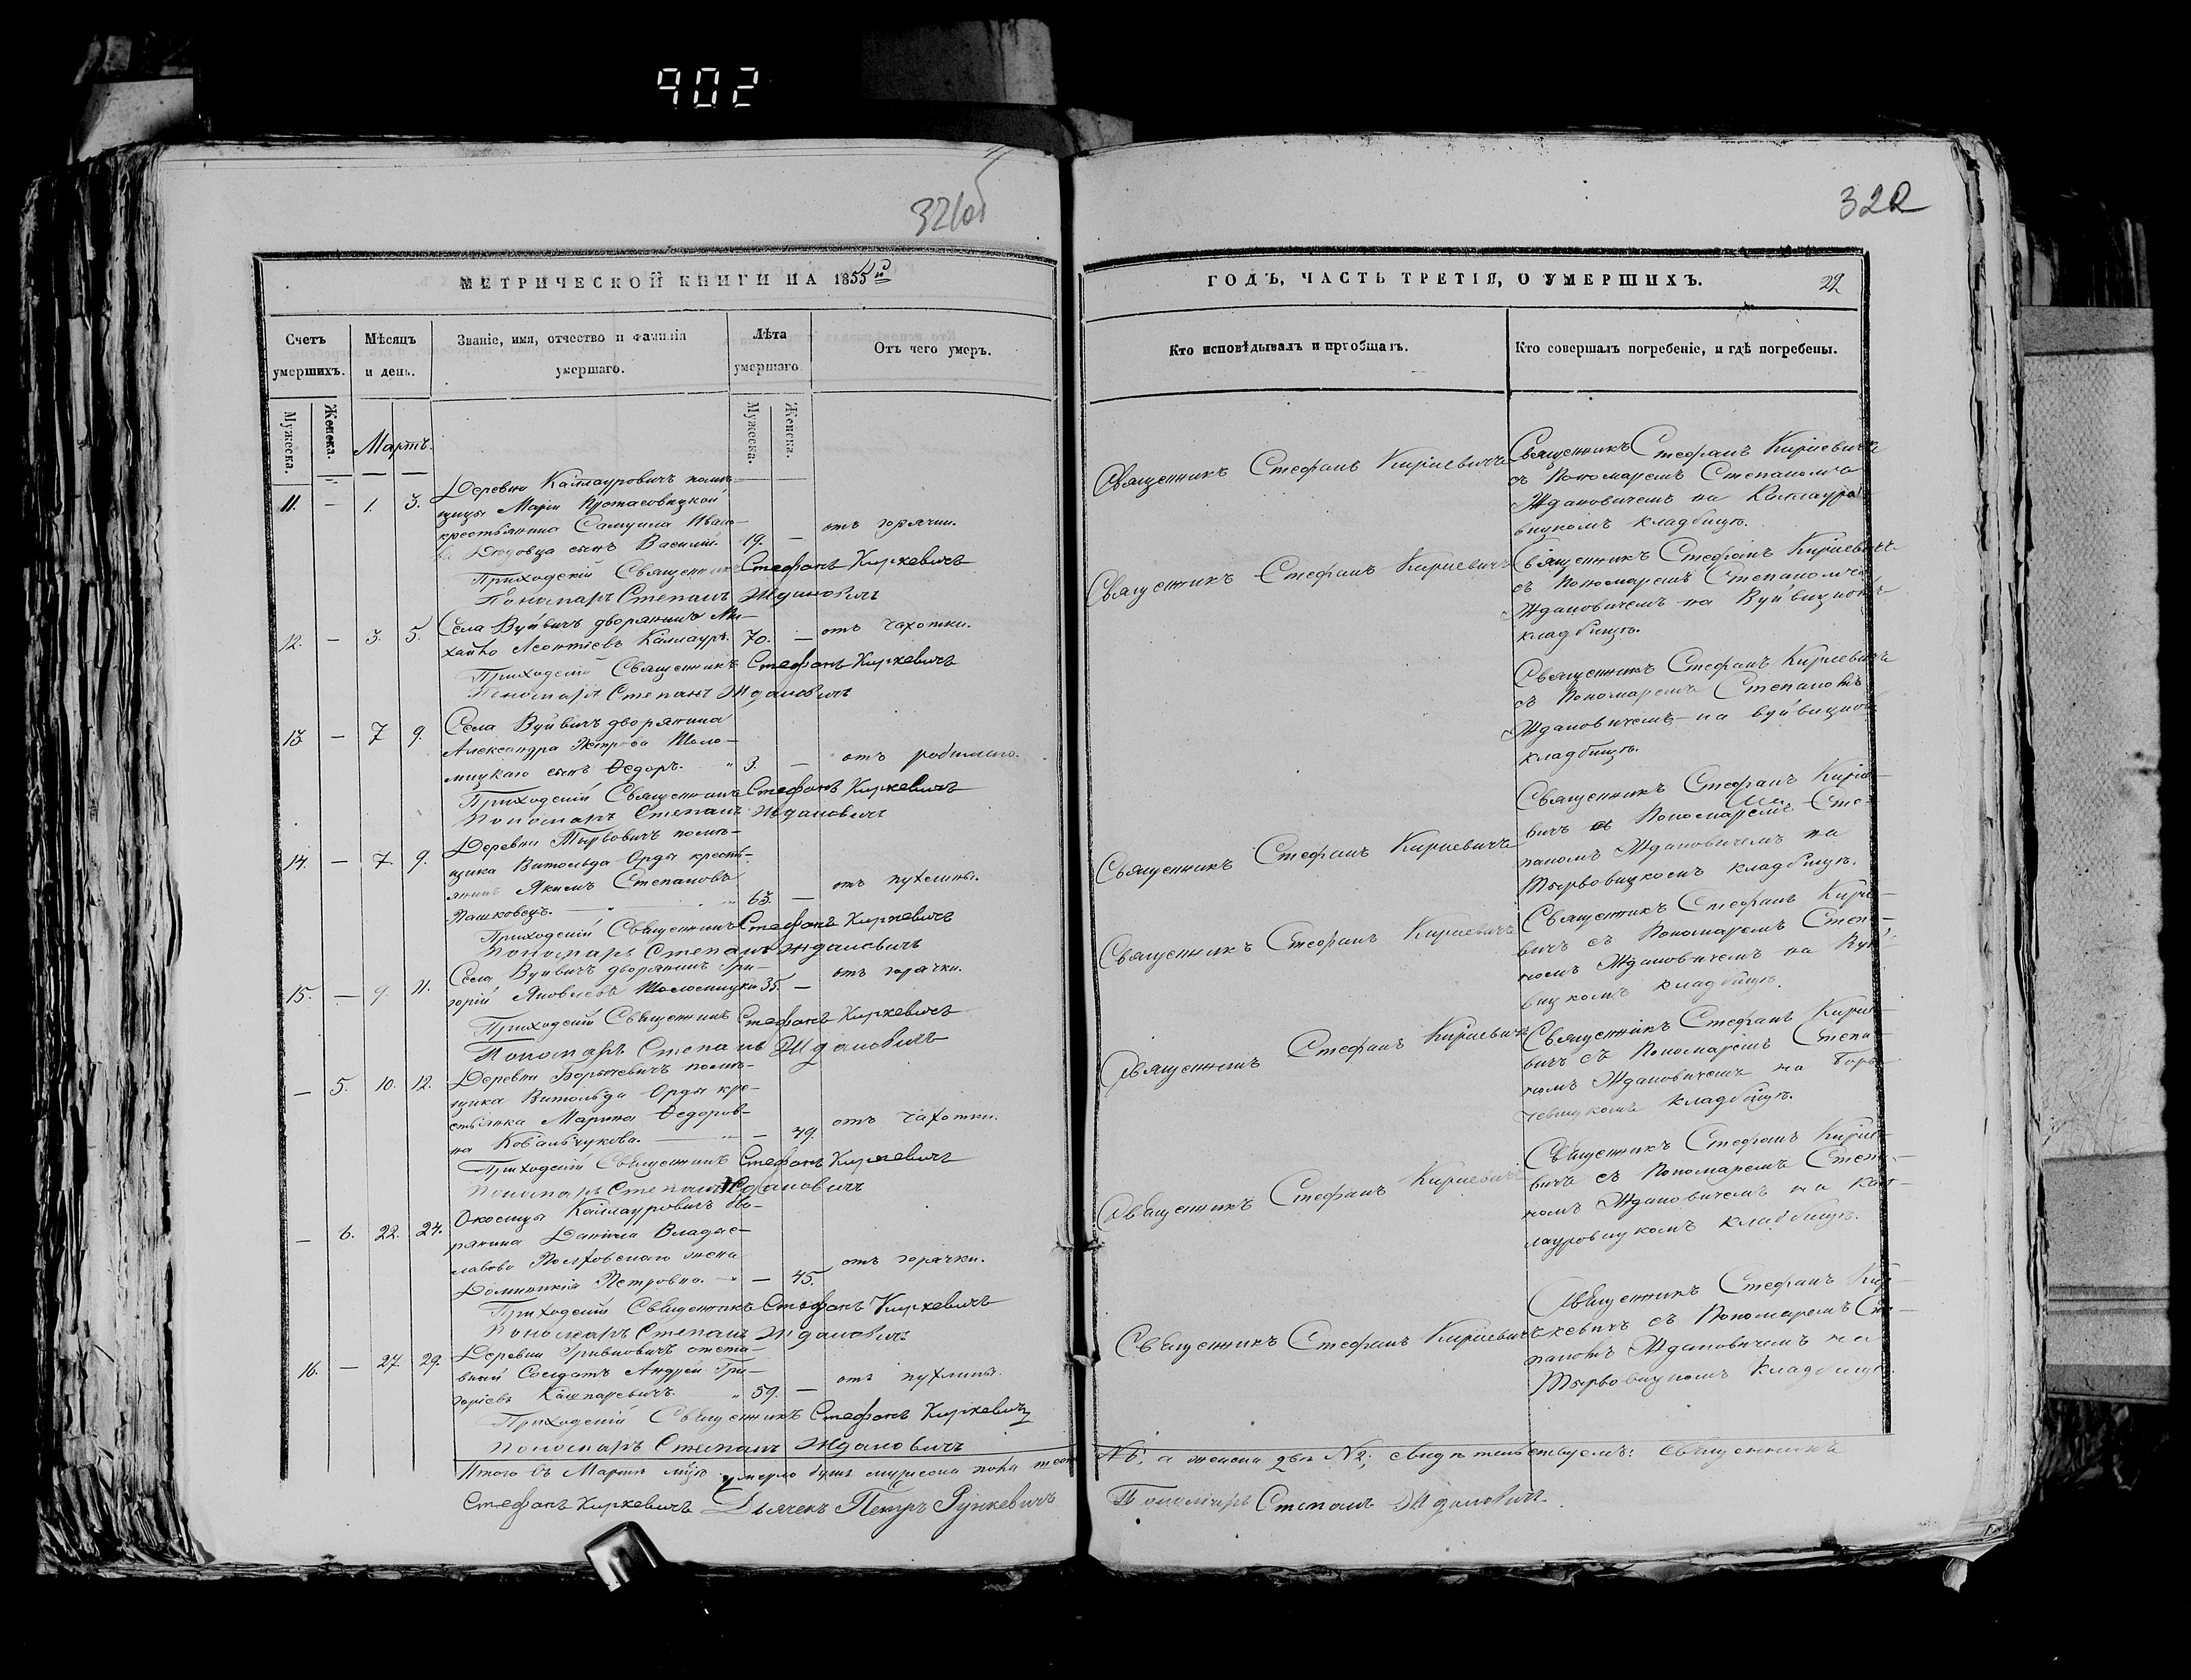 902
321об
322
МЕТРИЧЕСКОЙ КНИГИ НА 1855й
Счетъ умершихъ.
Мѣсяцъ и день.
Званіе, имя, отчество и фамилія умершаго.
Лѣта умершаго
Отъ чего умеръ.
Мужеска.
Женска.
Мужеска.
Женска.
Мартъ.
11. — 1. 3.
Деревни Каллауровичъ помѣ-
щицы Маріи Протасовицкой
крестьянина Самуила Ивано-
ва Дюдовца сынъ Василій. 19. — отъ горячки.
Приходскій Священникъ Стефанъ Киркевичъ
Пономаръ Степанъ Ждановичъ
12. — 3. 5.
Села Вуйвичъ дворянинъ Ми-
хайло Леонтіевъ Каллауръ. 70. — отъ чахотки.
Приходскій Священникъ Стефанъ Киркевичъ
Пономаръ Степанъ Ждановичъ
13. — 7 9.
Села Вуйвичъ дворянина
Александра Петрова Шоло-
мицкаго сынъ Ѳедоръ. " 3. — отъ родимаго.
Приходскій Священникъ Стефанъ Киркевичъ
Пономаръ Степанъ Ждановичъ
14. — 7 9.
Деревни Тырвовичъ помѣ-
щика Витольда Орды кресть-
янинъ Якимъ Степановъ
Пашковецъ. — 63. — отъ пухлины.
Приходскій Священникъ Стефанъ Киркевичъ
Пономаръ Степанъ Ждановичъ
15. — 9. 11.
Села Вуйвичъ дворянинъ Гри-
горій Яковлевъ Шоломицкій 35. — отъ горячки.
Приходскій Священникъ Стефанъ Киркевичъ
Пономаръ Степанъ Ждановичъ
— 5. 10. 12.
Деревни Борычевичъ помѣ-
щика Витольда Орды кре-
стьянка Марина Ѳедоров-
на Ковальчукова. — 49. отъ чахотки.
Приходскій Священникъ Стефанъ Киркевичъ
Пономаръ Степанъ Ждановичъ
— 6. 22. 24.
Околицы Каллауровичъ дво-
рянина Даніила Владис-
лавова жена
Доминикія Петровна. — 45. отъ горячки.
Приходскій Священникъ Стефанъ Киркевичъ
Пономаръ Степанъ Ждановичъ
16. — 27 29.
Деревни Гривковичъ отста-
вный Солдатъ Андрей Гри-
горіевъ Кашпаревичъ. " 59. — отъ пухлины.
Приходскій Священникъ Стефанъ Киркевичъ
Пономаръ Степанъ Ждановичъ
Итого въ Мартѣ умерло душъ мужеска пола шесть
Стефанъ Киркевичъ Дьячекъ Петръ Рункевичъ
ГОДЪ, ЧАСТЬ ТРЕТІЯ, О УМЕРШИХЪ. 29.
Кто исповѣдывалъ и пріобщалъ.
Кто совершалъ погребеніе, и гдѣ погребены.
Священникъ Стефанъ Киркевичъ
Священникъ Стефанъ Киркевичъ
съ Пономаремъ Степаномъ
Ждановичемъ на Каллауро-
вицкомъ кладбищѣ.
Священникъ Стефанъ Киркевичъ
Священникъ Стефанъ Киркевичъ
съ Пономаремъ Степаномъ
Ждановичемъ на Вуйвицкомъ
кладбищѣ.
Священникъ Стефанъ Киркевичъ
съ Пономаремъ Степаномъ
Ждановичемъ на Вуйвицкомъ
кладбищѣ.
Священникъ Стефанъ Киркевичъ
Священникъ Стефанъ Кирке-
вичъ съ Пономаремъ Сте-
паномъ Ждановичемъ на
Тырвовицкомъ кладбищѣ.
Священникъ Стефанъ Киркевичъ
Священникъ Стефанъ Кирке-
вичъ съ Пономаремъ Степа-
номъ Ждановичемъ на Вуй-
вицкомъ кладбищѣ.
Священникъ Стефанъ Киркевичъ
Священникъ Стефанъ Кирке-
вичъ съ Пономаремъ Степа-
номъ Ждановичемъ на Боры-
чевицкомъ кладбищѣ.
Священникъ Стефанъ Киркевичъ
Священникъ Стефанъ Кирке-
вичъ съ Пономаремъ Степа-
номъ Ждановичемъ на Кал-
лауровицкомъ кладбищѣ.
Священникъ Стефанъ Киркевичъ
Священникъ Стефанъ Кир-
кевичъ съ Пономаремъ Сте-
паномъ Ждановичемъ на
Тырвовицкомъ кладбищѣ.
№ 6, а женска двѣ № 2; свидѣтельствуемъ: Священникъ
Пономаръ Степанъ Ждановичъ.